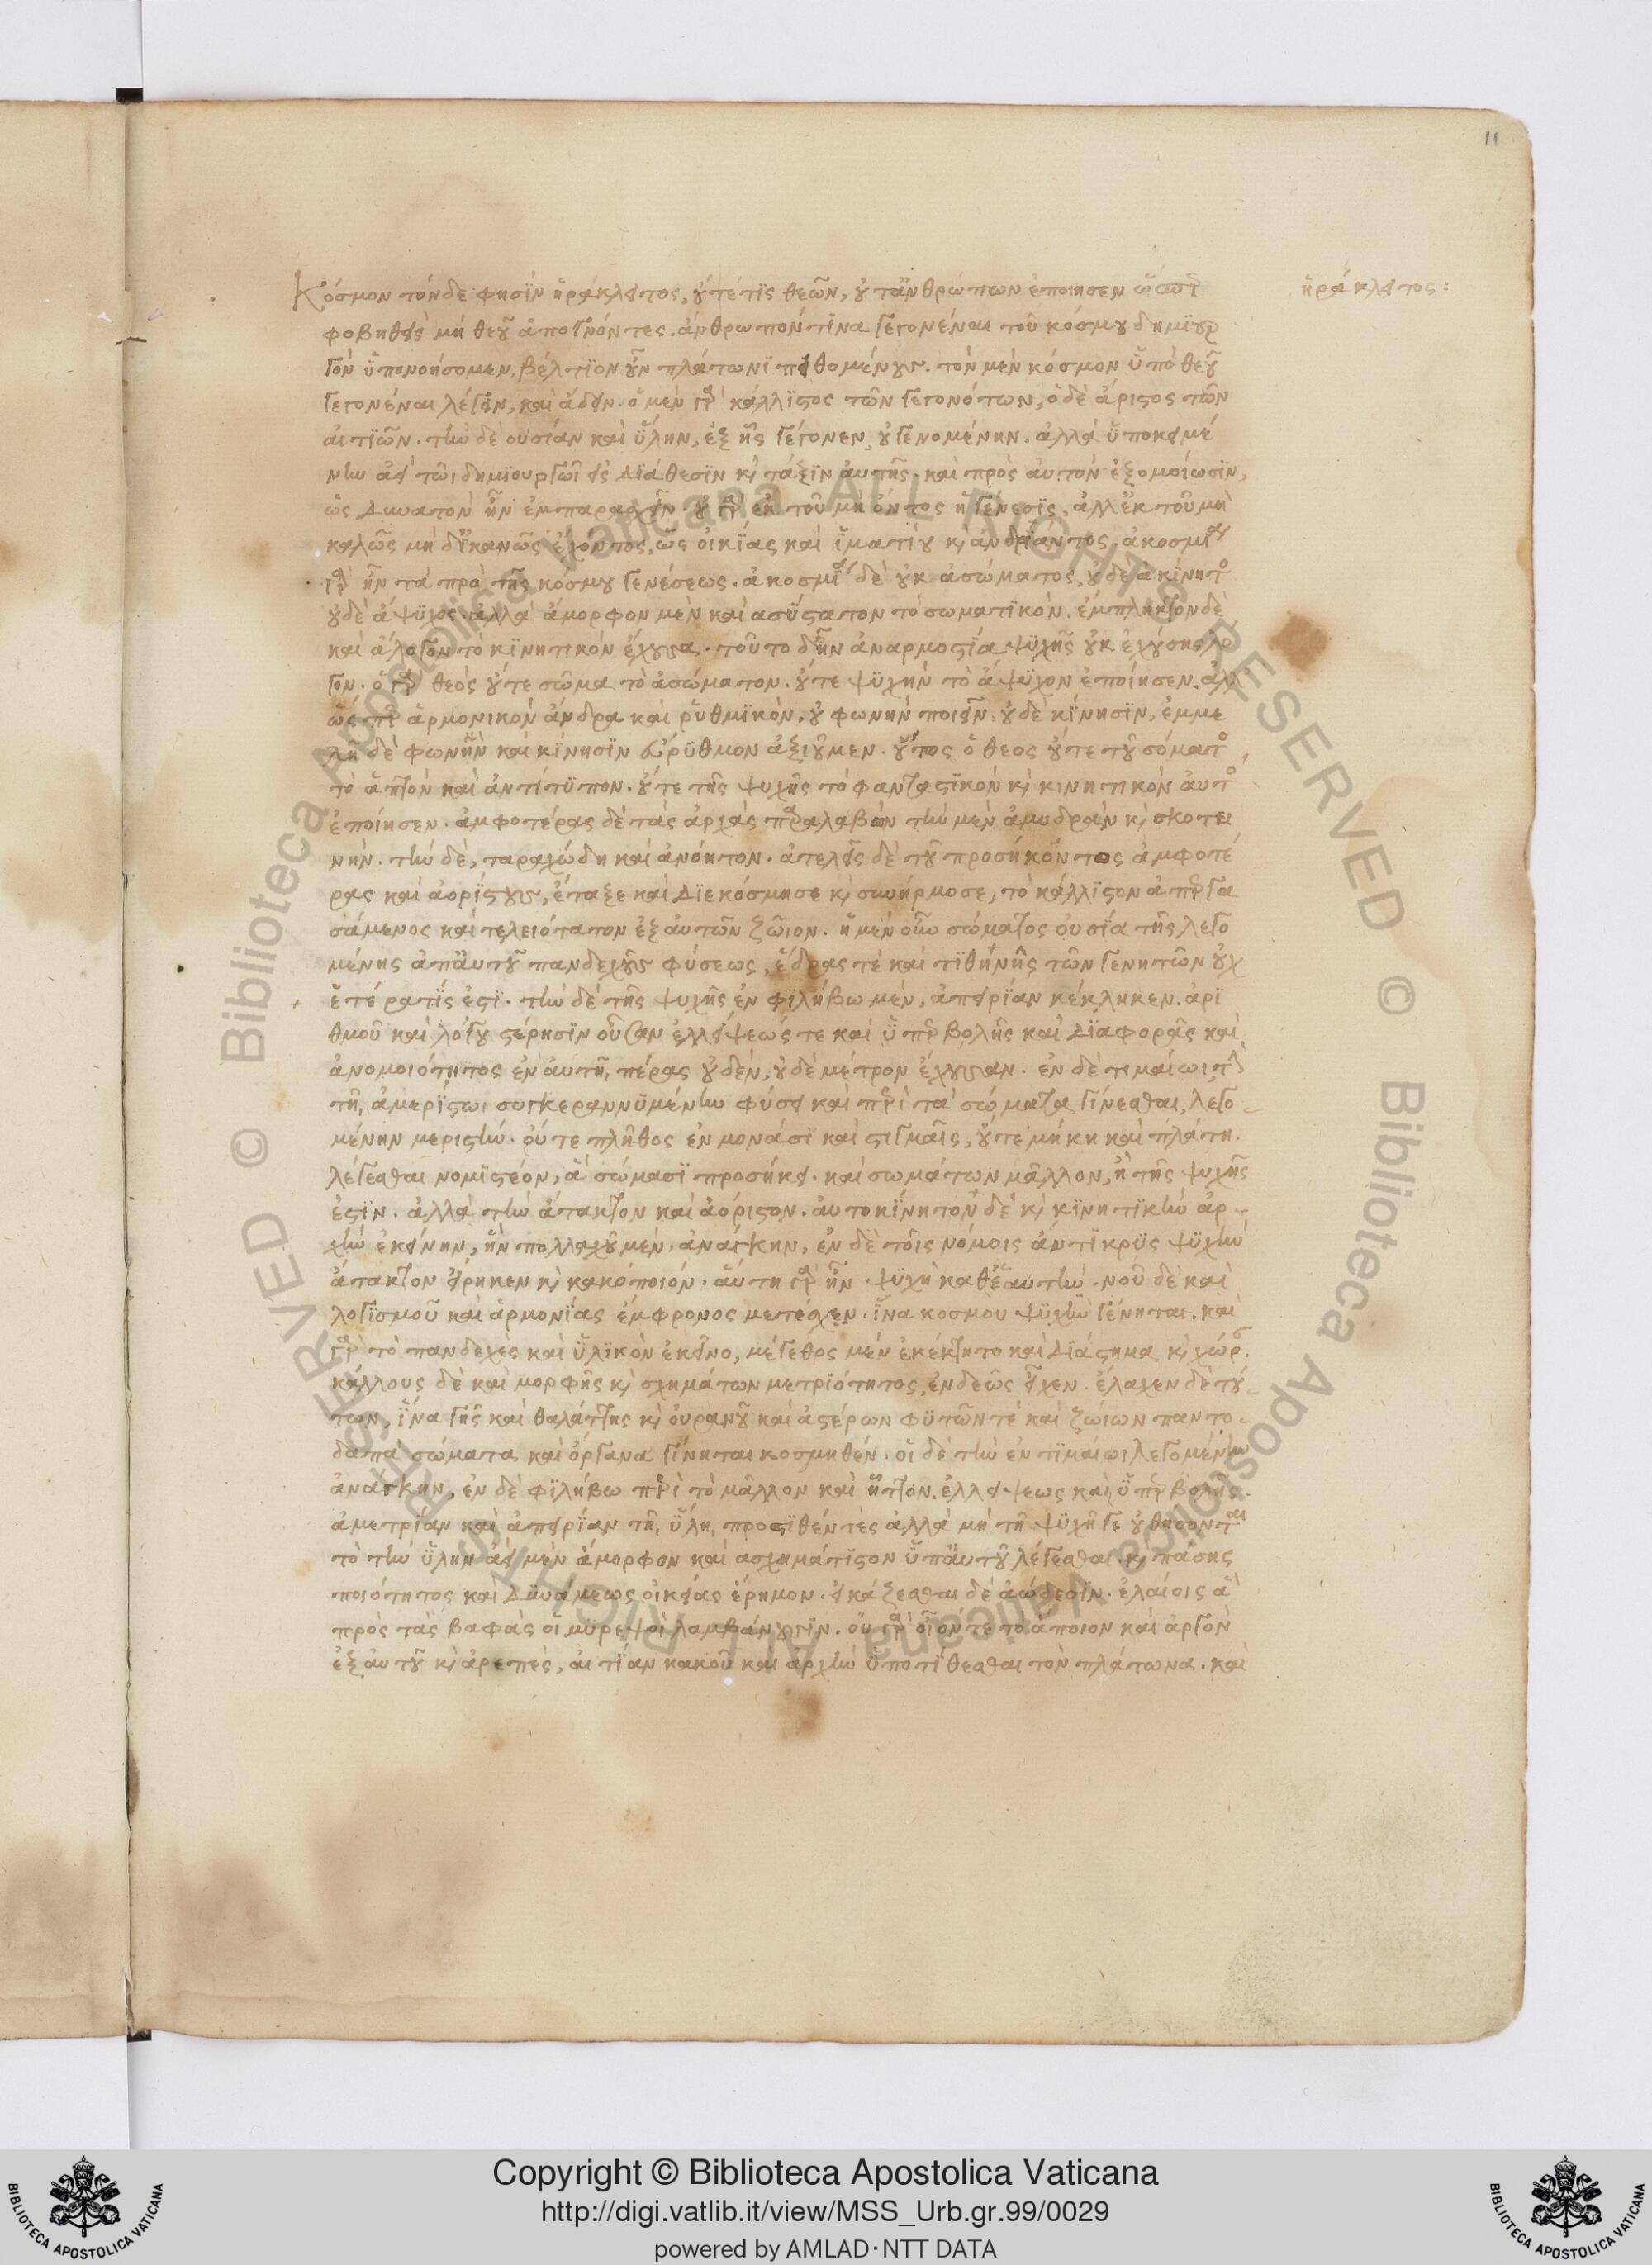 11
Κόσμον τόνδε φησὶν ἡράκλειτος, οὔτέ τις θεῶν, οὔτ' ἀνθρώπων ἐποίησεν ὥσπερ
ἡράκλειτος:
φοβηθεὶς μὴ θεοῦ ἀπογνόντες. ἄνθρωπόν τινα γεγονέναι τοῦ κόσμου δημιουρ
γὸν ὑπονοήσομεν. βέλτιον οὖν πλάτωνι πειθομένους. τὸν μὲν κόσμον ὑπὸ θεοῦ
γεγονέναι λέγειν, καὶ ἄδειν. ὁ μὲν γὰρ κάλλιστος τῶν γεγονότων, ὁ δὲ ἄριστος τῶν
αἰτιῶν. τὴν δὲ οὐσίαν καὶ ὕλην, ἐξ ἧς γέγονεν, οὐ γενομένην. ἀλλὰ ὑποκειμέ
νην ἀεὶ τῶι δημιουργῶι εἰς διάθεσιν καὶ τάξιν αὐτῆς. καὶ πρὸς αὐτὸν ἐξομοίωσιν,
ὡς δυνατὸν ἦν ἐμπαρασχεῖν. οὐ γὰρ ἐκ τοῦ μὴ ὄντος ἡ γένεσις, ἀλλ' ἐκ τοῦ μὴ
καλῶς μὴ δ' ἱκανῶς ἔχοντος, ὡς οἰκίας καὶ ἱματίου καὶ ἀνδριάντος. ἀκοσμία
γὰρ ἦν τὰ πρὸ τῆς κόσμου γενέσεως. ἀκοσμία δὲ οὐκ ἀσώματος, οὐδὲ ἀκίνητος
οὐδὲ ἄψυχος. ἀλλὰ ἄμορφον μὲν καὶ ἀσύστατον τὸ σωματικὸν. ἔμπληκτον δὲ
καὶ ἄλογον τὸ κινητικὸν ἔχουσα. τοῦτο δ' ἦν ἀναρμοστία ψυχῆς οὐκ ἐχούσης λό
γον. ὁ γὰρ θεὸς οὔτε σῶμα τὸ ἀσώματον. οὔτε ψυχὴν τὸ ἄψυχον ἐποίησεν. ἀλλ
ὥσπερ ἁρμονικὸν ἄνδρα καὶ ῥυθμικὸν, οὐ φωνὴν ποιεῖν, οὐδὲ κίνησιν, ἐμμε
λῆ δὲ φωνὴν καὶ κίνησιν εὔρυθμον ἀξιοῦμεν. οὕτως ὁ θεος οὔτε τοῦ σόματος
τὸ ἁπτὸν καὶ ἀντίτυπον. οὔτε τῆς ψυχῆς τὸ φανταστικὸν καὶ κινητικὸν αὐτὸς
ἐποίησεν. ἀμφοτέρας δὲ τὰς ἀρχὰς παραλαβὼν τὴν μὲν ἀμυδρὰν καὶ σκοτει
νὴν. τὴν δὲ, ταραχώδη καὶ ἀνόητον. ἀτελεῖς δὲ τοῦ προσήκοντος ἀμφοτέ
ρας καὶ ἀορίστους, ἔταξε καὶ διεκόσμησε καὶ συνήρμοσε, τὸ κάλλιστον ἀπεργα
σάμενος καὶ τελειότατον ἐξ αὐτῶν ζῶιον. ἡ μὲν οὖν σώματος οὐσία τῆς λεγο
μένης ἀπ' αὐτοῦ πανδεχοῦς φύσεως, ἕδρας τὲ καὶ τιθήνης τῶν γενητῶν οὐχ
ἑτέρα τίς ἐστι. τὴν δὲ τῆς ψυχῆς ἐν φιλήβω μὲν, ἀπειρίαν κέκληκεν. ἀρι
θμοῦ καὶ λόγου στέρησιν οὖσαν ἐλλείψεώς τε καὶ ὑπερβολῆς καὶ διαφορᾶς καὶ
ἀνομοιότητος ἐν αὐτῆ, πέρας οὐδὲν, οὐδὲ μέτρον ἔχουσαν. ἐν δὲ τιμαίωι τὴν
τῆ, ἀμερίστωι συγκεραννυμένην φύσει καὶ περὶ τὰ σώματα γίνεσθαι, λεγο
μένην μεριστὴν. οὔτε πλῆθος ἐν μονάσι καὶ στιγμαῖς, οὔτε μήκη καὶ πλάτη.
λέγεσθαι νομιστέον, ἃ σώμασι προσήκει. καὶ σωμάτων μᾶλλον, ἢ τῆς ψυχῆς
ἐστὶν. ἀλλὰ τὴν ἄτακτον καὶ ἀόριστον. αὐτοκίνητον δὲ καὶ κινητικὴν ἀρ
χὴν ἐκείνην, ἣν πολλαχοῦ μὲν, ἀνάγκην, ἐν δὲ τοῖς νόμοις ἄντικρυς ψυχὴν
ἄτακτον εἴρηκεν καὶ κακόποιόν. αὕτη γὰρ ἦν ψυχὴ καθ' ἑαυτὴν. νοῦ δὲ καὶ
λογισμοῦ καὶ ἁρμονίας ἔμφρονος μετέσχεν. ἵνα κοσμου ψυχὴ γένηται. καὶ
γὰρ τὸ πανδεχὲς καὶ ὑλικὸν ἐκεῖνο, μέγεθος μὲν ἐκέκτητο καὶ διάστημα καὶ χώραν.
κάλλους δὲ καὶ μορφῆς καὶ σχημάτων μετριότητος, ἐνδεῶς εἶχεν. ἔλαχεν δὲ τού
των, ἵνα γῆς καὶ θαλάττης καὶ οὐρανοῦ καὶ ἀστέρων φυτῶν τὲ καὶ ζώιων παντο
δαπὰ σώματα καὶ ὄργανα γίνηται κοσμηθέν. οἱ δὲ τὴν ἐν τιμαίωι λεγομένην
ἀνάγκην, ἐν δὲ φιλήβω περὶ τὸ μᾶλλον καὶ ἧττον. ἐλλείψεως καὶ ὑπερβολῆς.
ἀμετρίαν καὶ ἀπειρίαν τῆ, ὕλη, προστιθέντες ἀλλὰ μὴ τῆ ψυχῆ γε οὐ θήσονται
τὸ τὴν ὕλην ἀεὶ μὲν ἄμορφον καὶ ασχημάτιστον ὑπ' αὐτοῦ λέγεσθαι. καὶ πάσης
ποιότητος καὶ δυνάμεως οἰκείας ἔρημον. εἰκάζεσθαι δὲ ἀώδεσιν. ἐλαίοις ἃ
πρὸς τὰς βαφὰς οἱ μυρεψοὶ λαμβάνουσιν. οὐ γὰρ οἷόν τε τὸ ἄποιον καὶ ἀργὸν
ἐξ αὐτοῦ καὶ ἀρεπὲς, αἰτίαν κακοῦ καὶ ἀρχὴν ὑποτίθεσθαι τὸν πλάτωνα. καὶ
© Biblioteca Apostolica Vaticana ALL RIGHTS RESERVED © Biblioteca Apostolica Vaticana ALL RIGHTS RESERVED
BIBLIOTECA APOSTOLICA VATICANA
Copyright © Biblioteca Apostolica Vaticana
http://digi.vatlib.it/view/MSS_Urb.gr.99/0029
powered by AMLAD·NTT DATA
BIBLIOTECA APOSTOLICA VATICANA